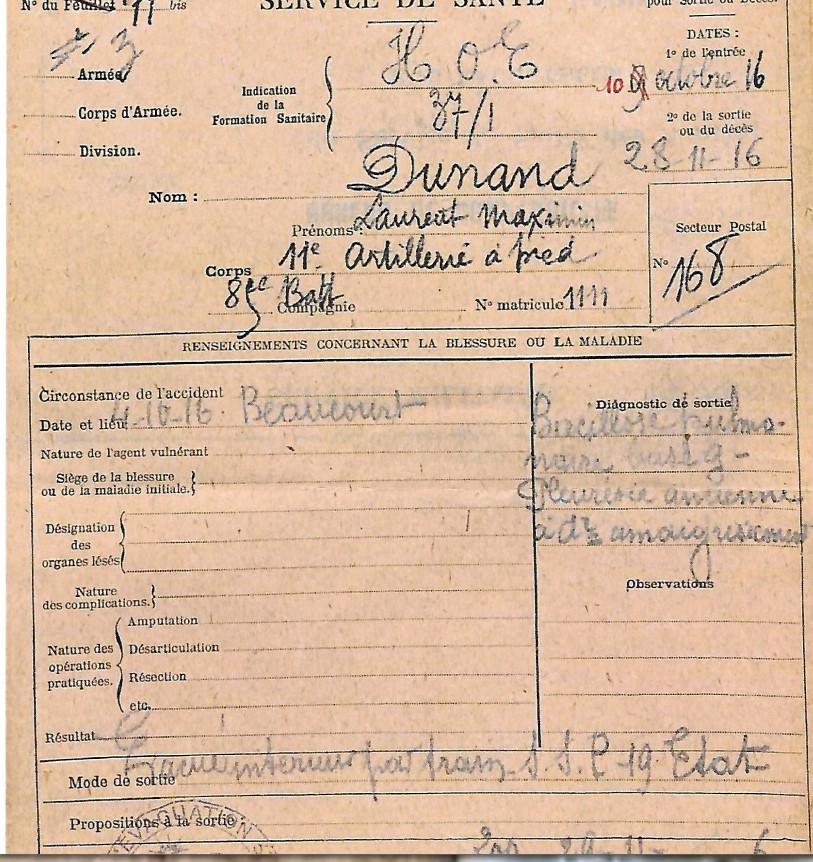 N° du Feuillet 11 bis
SERVICE DE SANTÉ
pour Sortie ou Décès.
DATES :
1° de l'entrée
octobre 16
2° de la sortie
ou du décès
28-11-16
Armée
Corps d'Armée.
Division.
Indication
de la
Formation Sanitaire
H.O.E
37/1
Nom : Dunand
Prénoms : Laurent Maximin
Corps 11e Artillerie à pied
8e Batt
Compagnie
N° matricule 1111
Secteur Postal
N° 168
RENSEIGNEMENTS CONCERNANT LA BLESSURE OU LA MALADIE
Circonstance de l'accident
Date et lieu 4-10-16 Beaucourt
Nature de l'agent vulnérant
Siège de la blessure
ou de la maladie initiale.
Désignation
des
organes lésés
Nature
des complications.
Nature des
opérations
pratiquées.
Amputation
Désarticulation
Résection
etc.
Résultat
Diagnostic de sortie
Bacillose pulmo-
naire base g-
Pleurésie ancienne
à dte amaigrissement
Observations
Mode de sortie Evacué intérieur par train S.S.P 19 Etat
Propositions à la sortie
EVACUATION